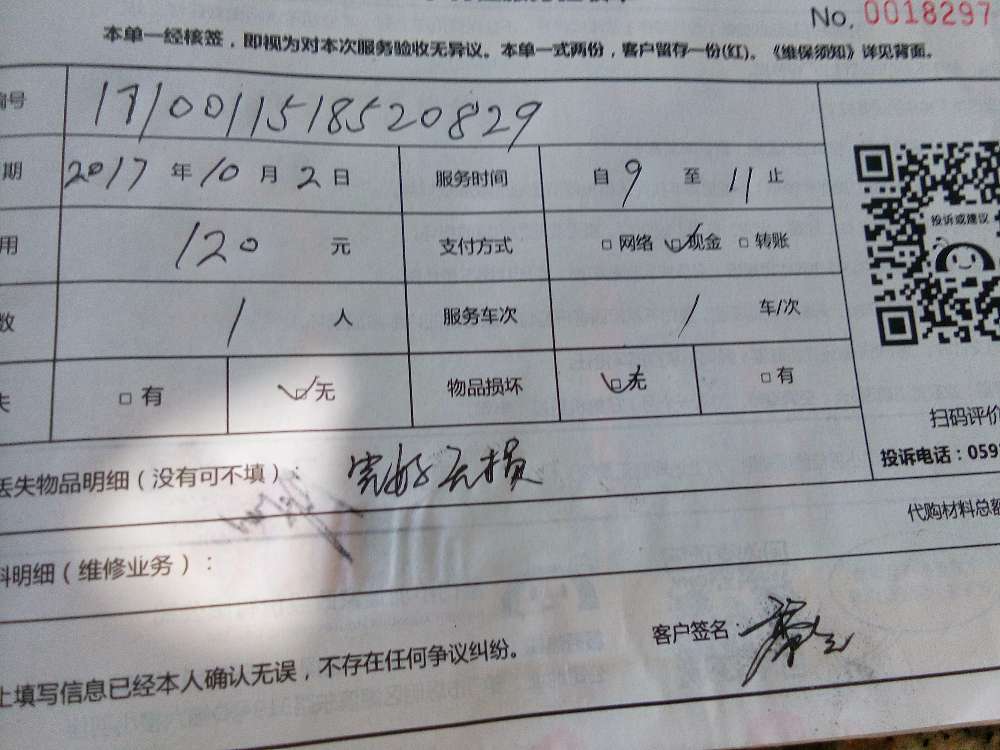 No. 0018297
本单一经核签，即视为对本次服务验收无异议。本单一式两份，客户留存一份(红)。《维保须知》详见背面。
编号 1710011518520829
期 2017 年 10 月 2 日 服务时间 自 9 至 11 止
用 120 元 支付方式 □ 网络 □ 现金 □ 转账
数 1 人 服务车次 1 车/次
失 □ 有 □ 无 物品损坏 □ 无 □ 有
投诉或建议
扫码评价
投诉电话：059
丢失物品明细（没有可不填）： 完好无损
代购材料总额
料明细（维修业务）：
上填写信息已经本人确认无误，不存在任何争议纠纷。 客户签名：